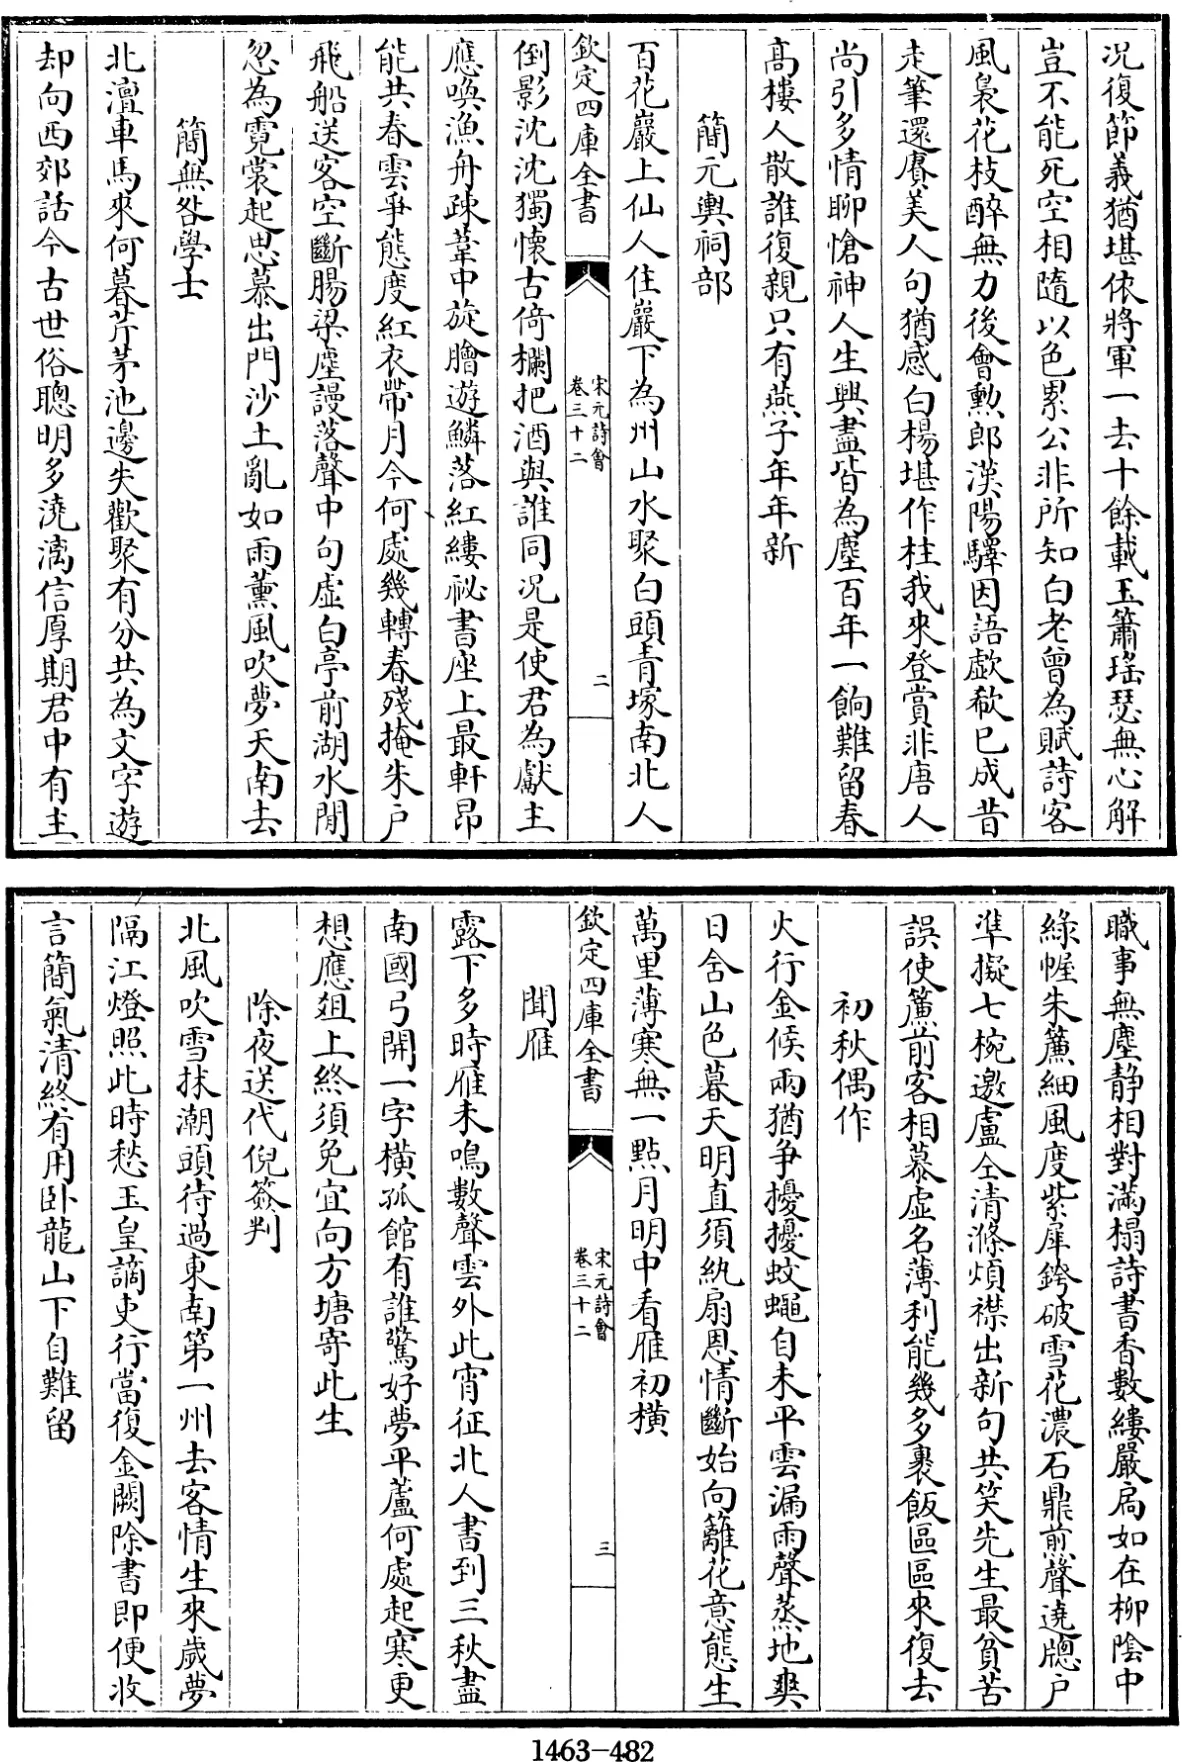 况復節義猶堪依將軍一去十餘載玉簫瑤瑟無心解
豈不能死空相隨以色累公非所知白老曾為賦詩客
風裊花枝醉無力後會勲郎漢陽驛因語歔欷已成昔
走筆還賡美人句猶感白楊堪作柱我來登賞非唐人
尚引多情聊愴神人生興盡皆為塵百年一餉難留春
髙樓人散誰復親只有燕子年年新
簡元輿祠部
百花巖上仙人住巖下為州山水聚白頭青塚南北人
欽定四庫全書
宋元詩會
卷三十二
二
倒影沈沈獨懷古倚欄把酒與誰同况是使君為獻主
應喚漁舟疎葦中旋膾遊鱗落紅縷祕書座上最軒昂
能共春雲爭態度紅衣帶月今何處幾轉春殘掩朱户
飛船送客空斷腸梁塵謾落聲中句虚白亭前湖水閒
忽為霓裳起思慕出門沙土亂如雨薰風吹夢天南去
簡無咎學士
北澶車馬來何暮芹茅池邊失歡聚有分共為文字遊
却向西郊話今古世俗聰明多澆漓信厚期君中有主
職事無塵静相對滿榻詩書香數縷嚴扃如在栁陰中
綠幄朱簾細風度紫犀銙破雪花濃石鼎煎聲遶牕户
準擬七椀邀盧仝清滌煩襟出新句共笑先生最貧苦
誤使簾前客相慕虚名薄利能幾多裹飯區區來復去
初秋偶作
火行金候兩猶争擾擾蚊蠅自未平雲漏雨聲蒸地爽
日含山色暮天明直須紈扇恩情斷始向籬花意態生
萬里薄寒無一點月明中看雁初橫
欽定四庫全書
宋元詩會
卷三十二
三
聞雁
露下多時雁未鳴數聲雲外此宵征北人書到三秋盡
南國弓開一字橫孤館有誰驚好夢平蘆何處起寒更
想應俎上終須免宜向方塘寄此生
除夜送代倪簽判
北風吹雪抹潮頭待過東南第一州去客情生來歲夢
隔江燈照此時愁玉皇謫吏行當復金闕除書即便收
言簡氣清終有用卧龍山下自難留
1463-482